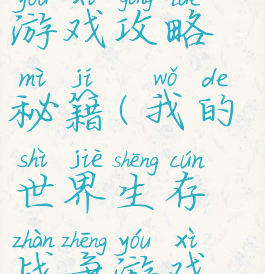 yóu xì gōng lüè
游戏攻略
mì jí wǒ de
秘籍(我的
shì jiè shēng cún
世界生存
zhàn zhēng yóu xì
战争游戏